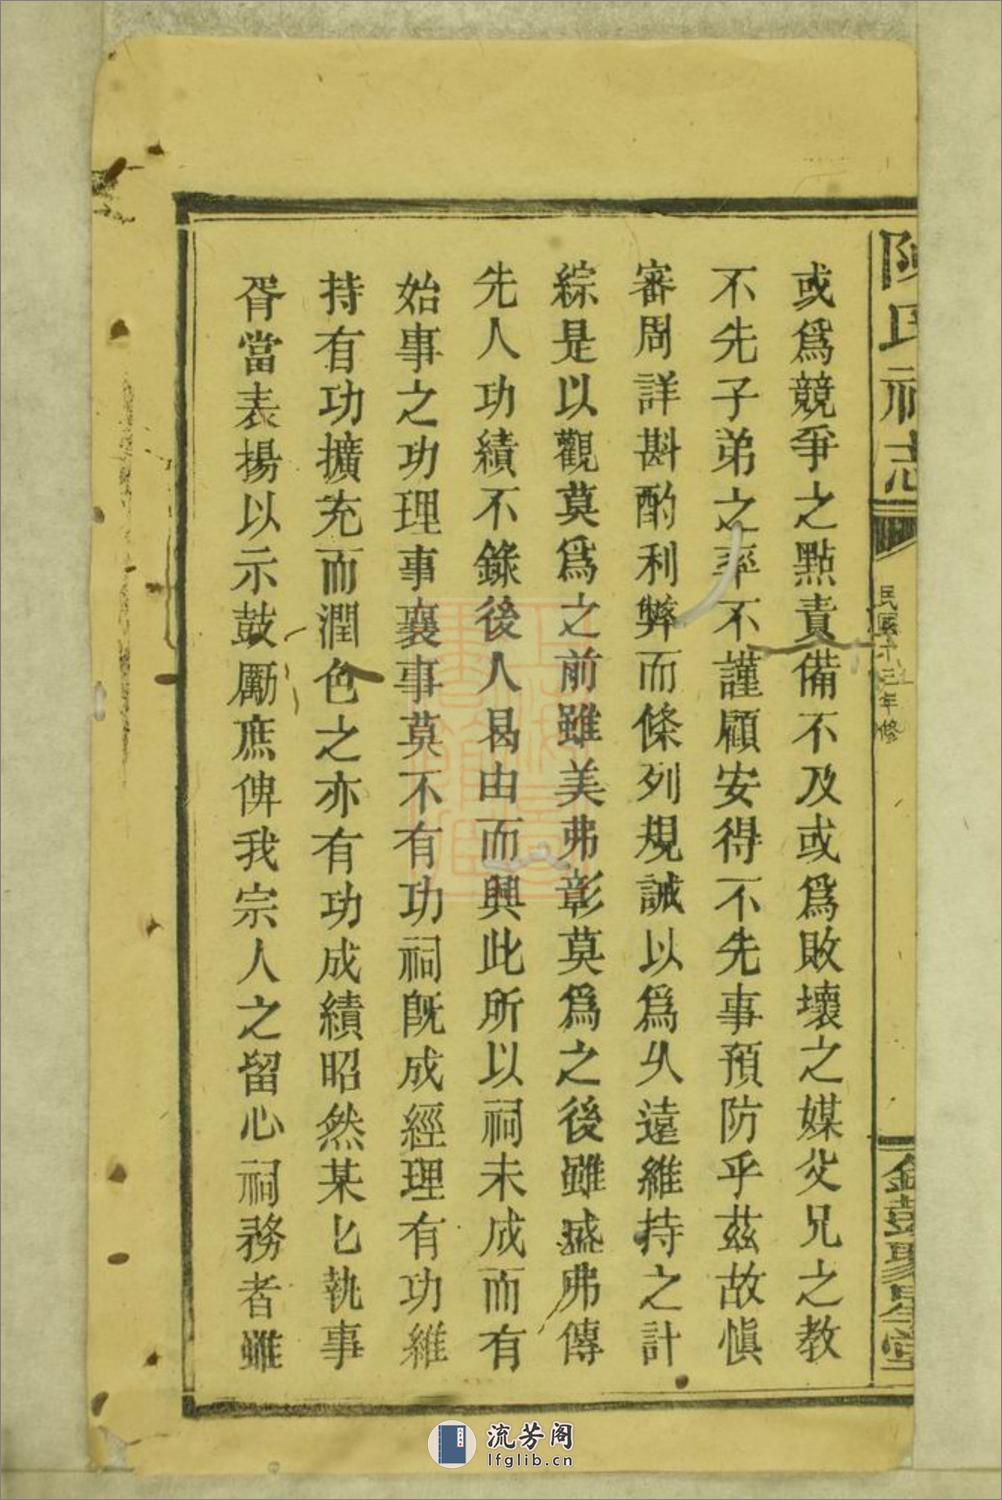 陳氏祠志
民國十三年修
或爲競爭之點責備不及或爲敗壞之媒父兄之教
不先子弟之率不謹顧安得不先事預防乎茲故愼
審周詳斟酌利弊而條列規誡以爲久遠維持之計
綜是以觀莫爲之前雖美弗彰莫爲之後雖盛弗傳
先人功績不錄後人曷由而興此所以祠未成而有
始事之功理事襄事莫不有功祠旣成經理有功維
持有功擴充而潤色之亦有功成績昭然某匕執事
胥當表揚以示鼓勵庶俾我宗人之留心祠務者雖
流芳阁
lfglib.cn